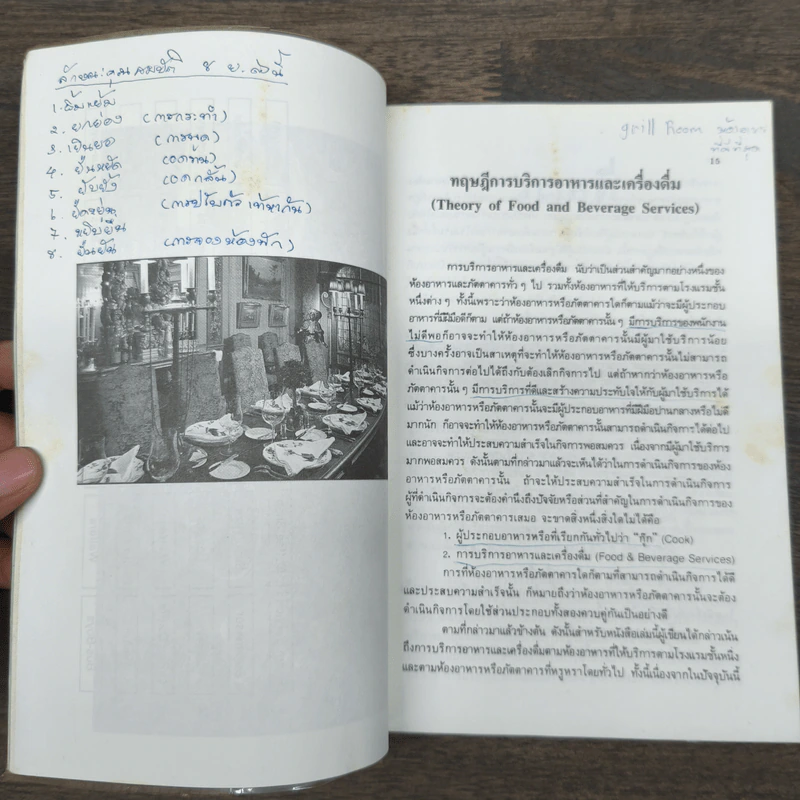 ลักษณะคุณสมบัติ 8 ย. ดังนี้
1. ยิ้มแย้ม
2. ยกย่อง (การกระทำ)
3. เยินยอ (การพูด)
4. ยืนหยัด (อดทน)
5. ยับยั้ง (อดกลั้น)
6. ยืดหยุ่น
7. หยิบยืม
8. ยืนยัน (การจองห้องพัก)
grill Room ห้องอาหาร
ที่ดีที่สุด
15
ทฤษฎีการบริการอาหารและเครื่องดื่ม
(Theory of Food and Beverage Services)
การบริการอาหารและเครื่องดื่ม นับว่าเป็นส่วนสำคัญมากอย่างหนึ่งของ
ห้องอาหารและภัตตาคารทั่ว ๆ ไป รวมทั้งห้องอาหารที่ให้บริการตามโรงแรมชั้น
หนึ่งต่าง ๆ ทั้งนี้เพราะว่าห้องอาหารหรือภัตตาคารใดก็ตามแม้ว่าจะมีผู้ประกอบ
อาหารที่มีฝีมือดีก็ตาม แต่ถ้าห้องอาหารหรือภัตตาคารนั้น ๆ มีการบริการของพนักงาน
ไม่ดีพอก็อาจจะทำให้ห้องอาหารหรือภัตตาคารนั้นมีผู้มาใช้บริการน้อย
ซึ่งบางครั้งอาจเป็นสาเหตุที่จะทำให้ห้องอาหารหรือภัตตาคารนั้นไม่สามารถ
ดำเนินกิจการต่อไปได้ถึงกับต้องเลิกกิจการไป แต่ถ้าหากว่าห้องอาหารหรือ
ภัตตาคารนั้น ๆ มีการบริการที่ดีและสร้างความประทับใจให้กับผู้มาใช้บริการได้
แม้ว่าห้องอาหารหรือภัตตาคารนั้นจะมีผู้ประกอบอาหารที่มีฝีมือปานกลางหรือไม่ดี
มากนัก ก็อาจจะทำให้ห้องอาหารหรือภัตตาคารนั้นสามารถดำเนินกิจการได้ต่อไป
และอาจจะทำให้ประสบความสำเร็จในกิจการพอสมควร เนื่องจากมีผู้มาใช้บริการ
มากพอสมควร ดังนั้นตามที่กล่าวมาแล้วจะเห็นได้ว่าในการดำเนินกิจการของห้อง
อาหารหรือภัตตาคารนั้น ถ้าจะให้ประสบความสำเร็จในการดำเนินกิจการ
ผู้ที่ดำเนินกิจการจะต้องคำนึงถึงปัจจัยหรือส่วนที่สำคัญในการดำเนินกิจการของ
ห้องอาหารหรือภัตตาคารเสมอ จะขาดสิ่งหนึ่งสิ่งใดไม่ได้คือ
1. ผู้ประกอบอาหารหรือที่เรียกกันทั่วไปว่า “กุ๊ก” (Cook)
2. การบริการอาหารและเครื่องดื่ม (Food & Beverage Services)
การที่ห้องอาหารหรือภัตตาคารใดก็ตามที่สามารถดำเนินกิจการได้ดี
และประสบความสำเร็จนั้น ก็หมายถึงว่าห้องอาหารหรือภัตตาคารนั้นจะต้อง
ดำเนินกิจการโดยใช้ส่วนประกอบทั้งสองควบคู่กันเป็นอย่างดี
ตามที่กล่าวมาแล้วข้างต้น ดังนั้นสำหรับหนังสือเล่มนี้ผู้เขียนได้กล่าวเน้น
ถึงการบริการอาหารและเครื่องดื่มตามห้องอาหารที่ให้บริการตามโรงแรมชั้นหนึ่ง
และตามห้องอาหารหรือภัตตาคารที่หรูหราโดยทั่วไป ทั้งนี้เนื่องจากในปัจจุบันนี้